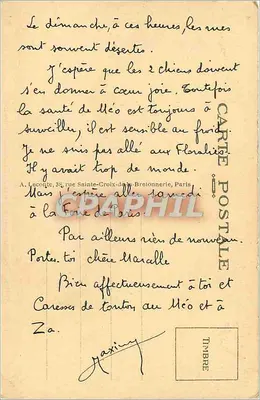 Le dimanche, à ces heures, les rues
sont souvent désertes.
J'espère que les 2 chiens doivent
s'en donner à cœur joie. Toutefois
la santé de Méo est toujours à
surveiller, il est sensible au froid
Je ne suis pas allé aux Floralies
Il y avait trop de monde.
A. Leconte, 38, rue Sainte-Croix-de-la-Bretonnerie, Paris
Mais j'espère aller samedi
à la Foire de Paris
CPAPHIL
Par ailleurs rien de nouveau.
Portes-toi chère Marcelle
Bien affectueusement à toi et
Caresses de tonton au Méo et à
Za.
CARTE POSTALE
TIMBRE